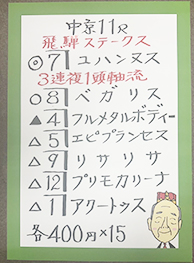 中京11R
飛騨ステークス
◎7 ユハンヌス
3連複1頭軸流
○8 ベガリス
▲4 フルメタルボディー
△5 エピプランセス
△9 リサリサ
△12 プリモカリーナ
△11 アクートゥス
各400円×15